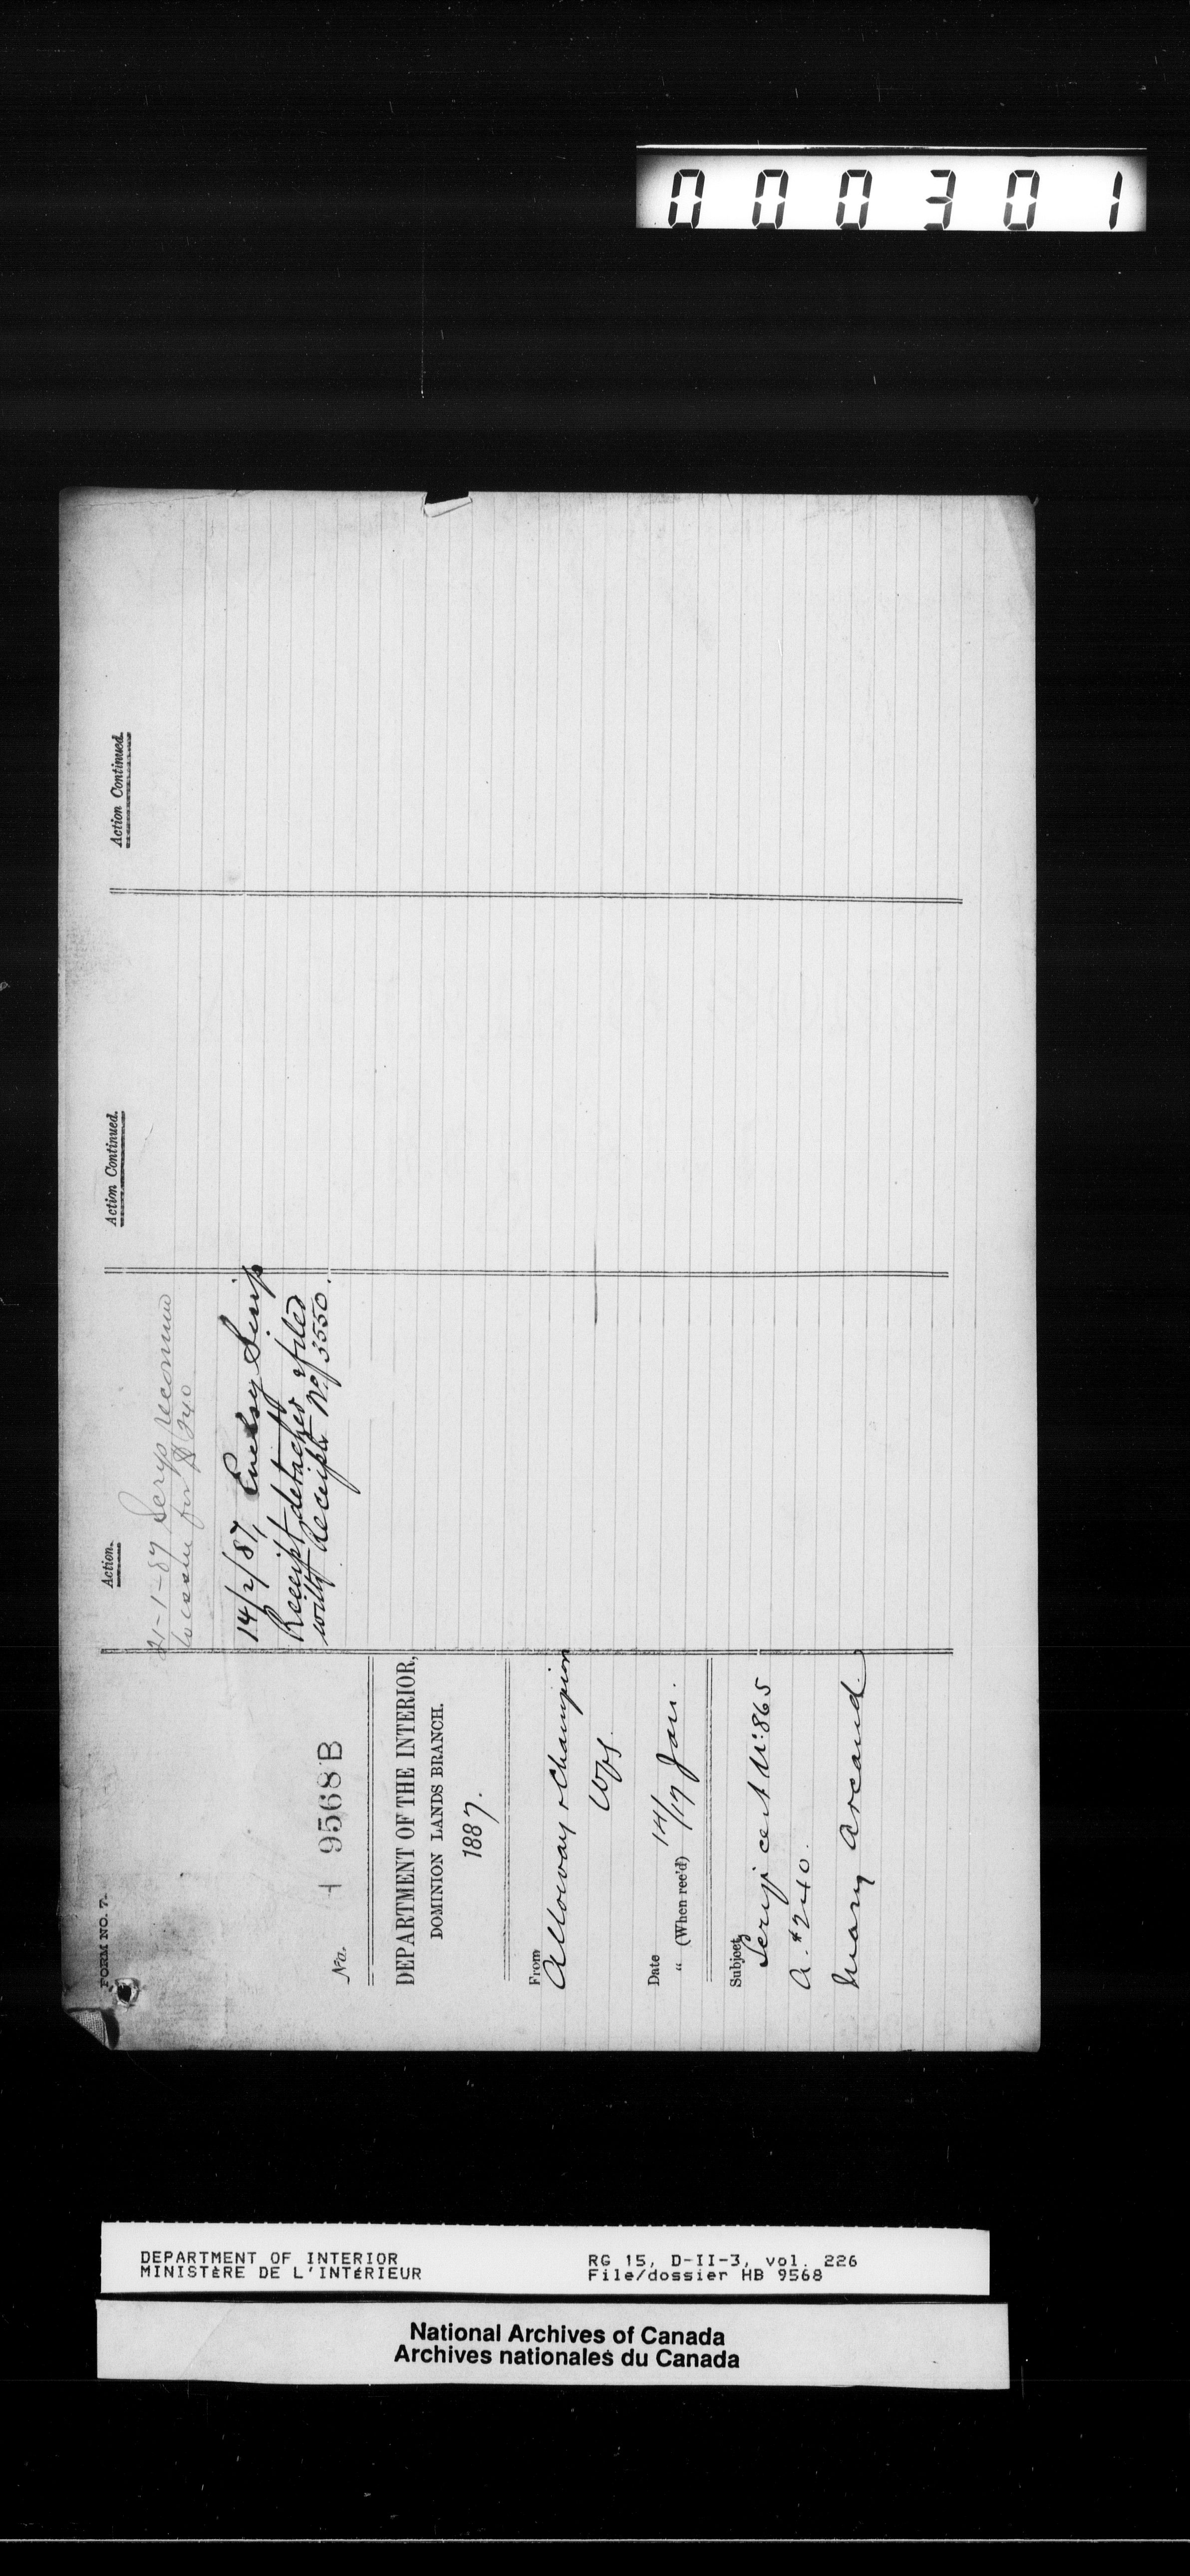 000301
FORM NO. 7.
No. 9568B
DEPARTMENT OF THE INTERIOR,
DOMINION LANDS BRANCH.
1887.
From
Alloway & Champion
Wpg.
Date 14/
" (When rec'd) 17 Jan.
Subject,
Scrip cert No: 865
A. $240.
Mary Arcand
Action.
21-1-87 Scrip recommd
to issue for $240
14/2/87, Scrip
Receipt detached & filed
with Receipt No/3550.
Action Continued.
Action Continued.
DEPARTMENT OF INTERIOR
MINISTÈRE DE L'INTÉRIEUR
RG 15, D-II-3, vol. 226
File/dossier HB 9568
National Archives of Canada
Archives nationales du Canada